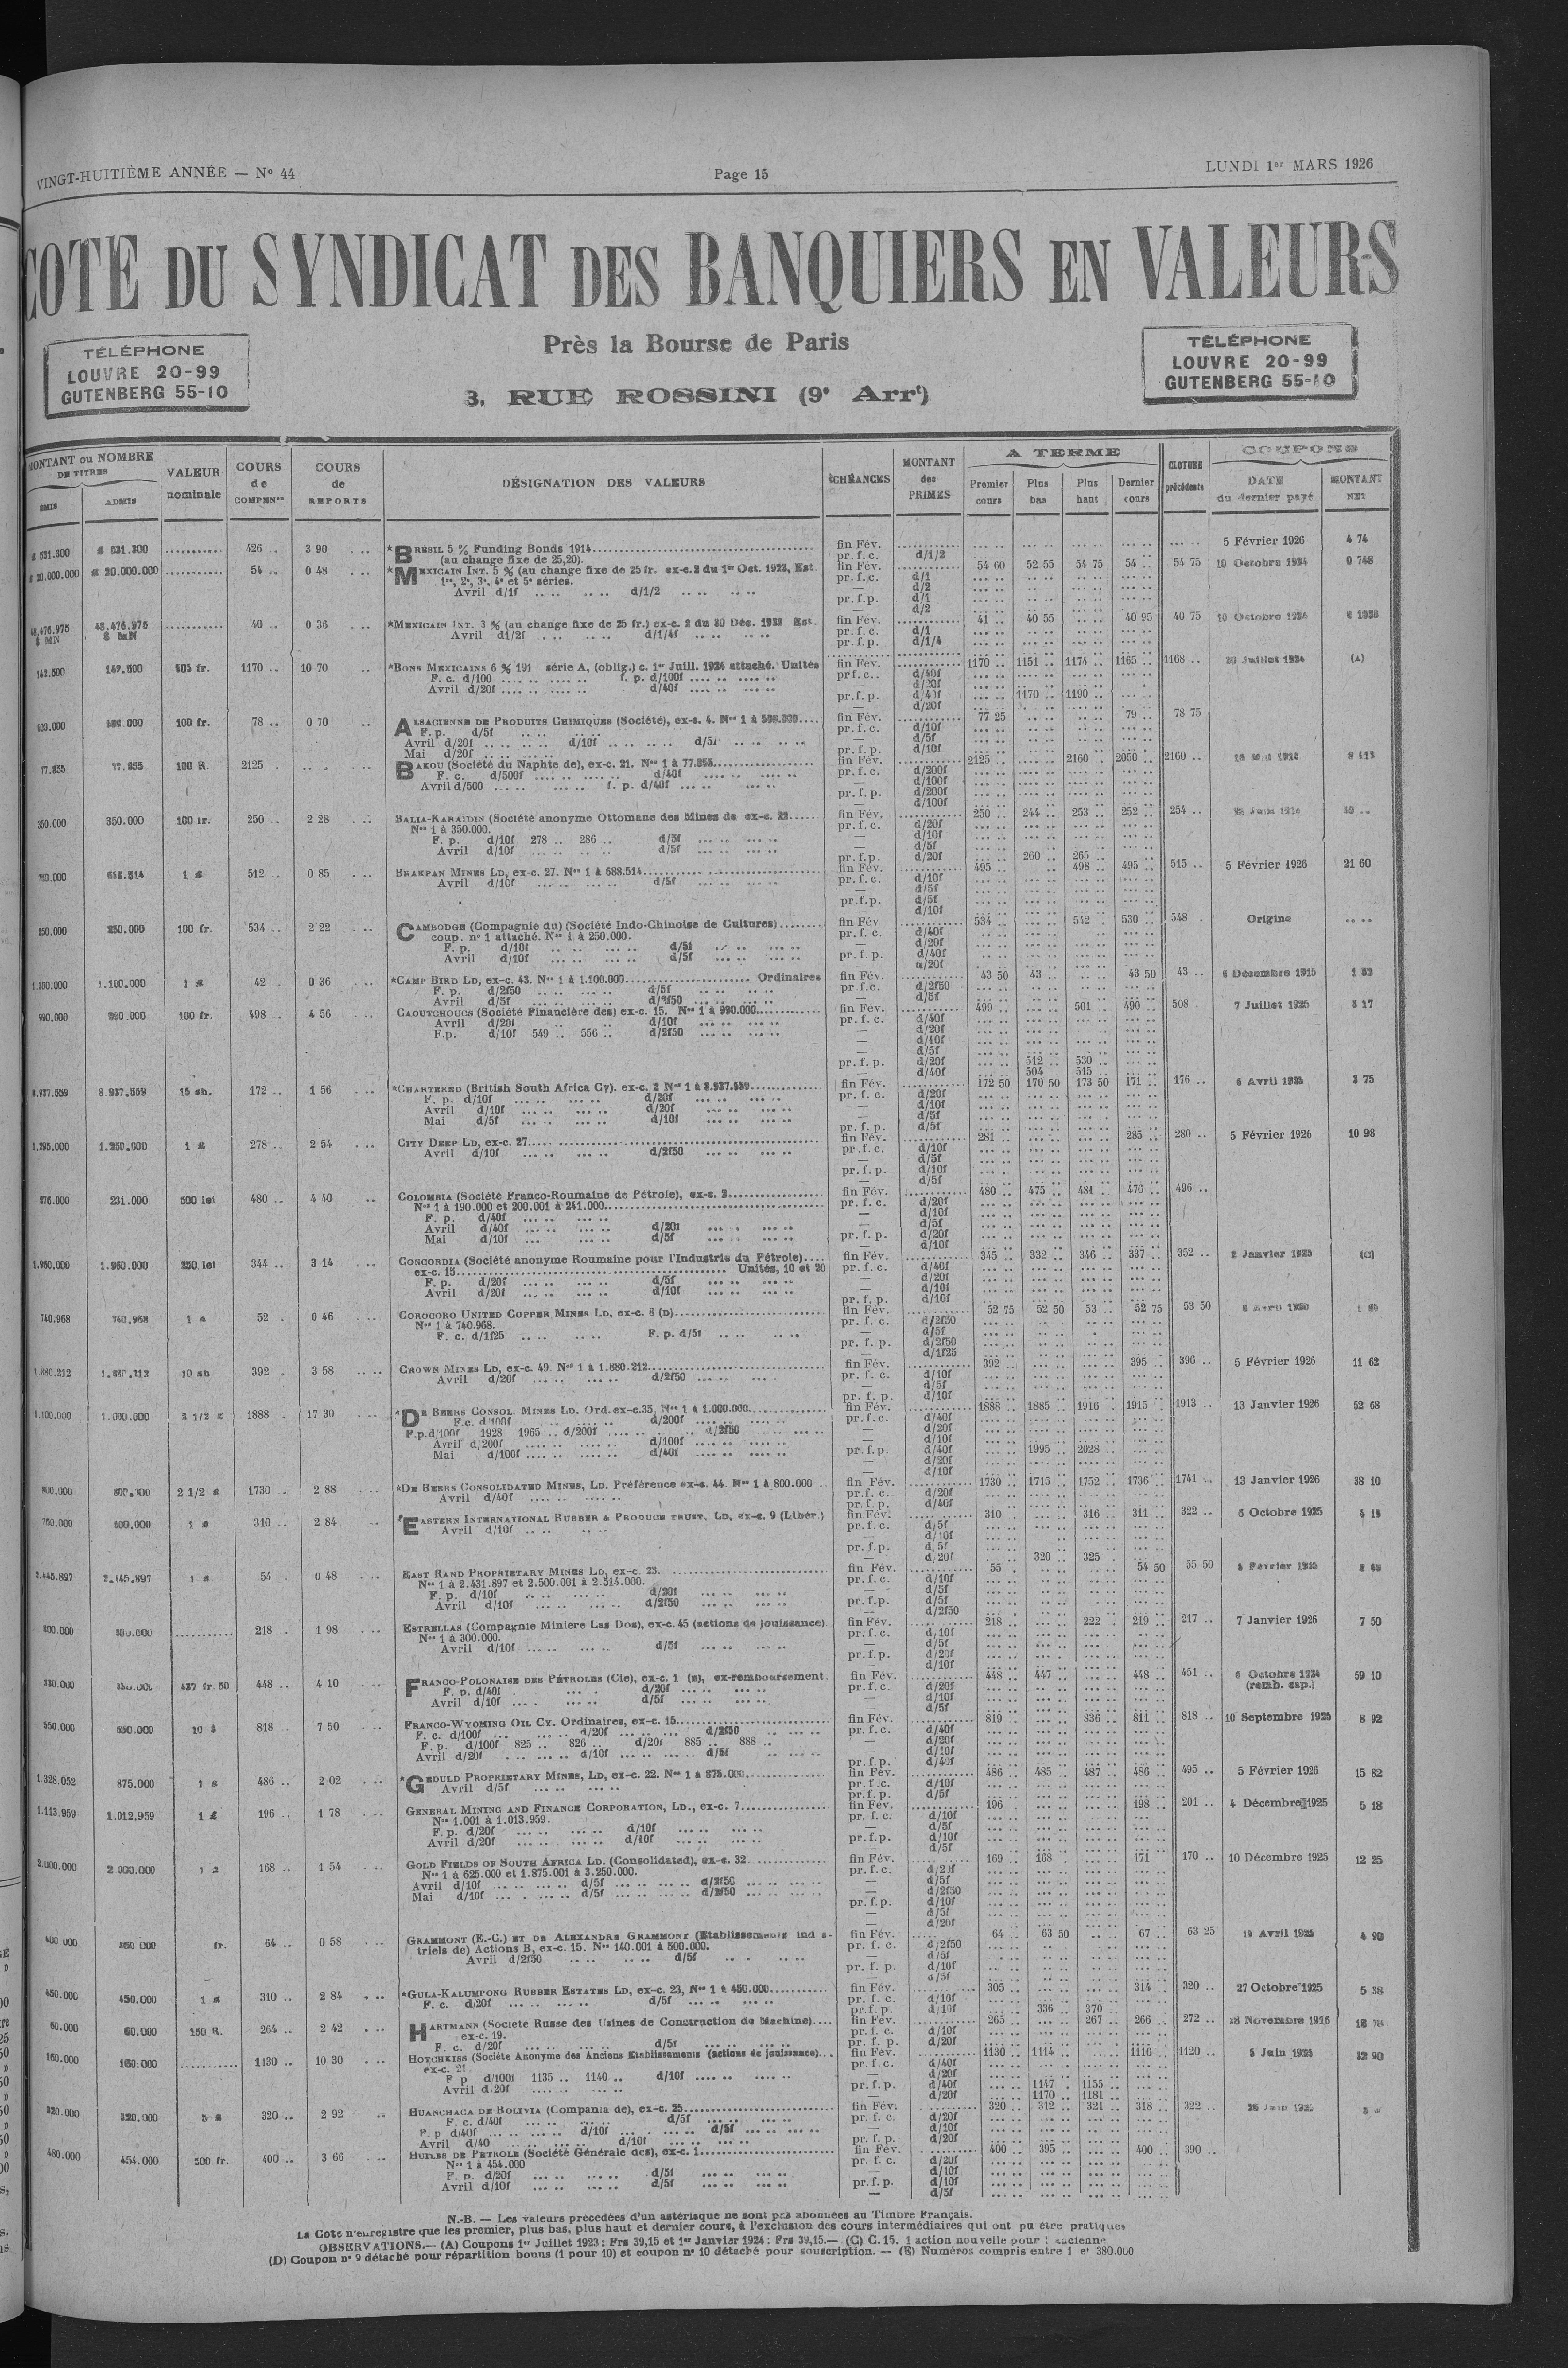 VINGT-HUITIÈME ANNÉE — N° 44
Page 15
LUNDI 1er MARS 1926
COTE DU SYNDICAT DES BANQUIERS EN VALEURS
Près la Bourse de Paris
3, RUE ROSSINI (9e Arrt)
TÉLÉPHONE
LOUVRE 20-99
GUTENBERG 55-10
TÉLÉPHONE
LOUVRE 20-99
GUTENBERG 55-10
MONTANT ou NOMBRE DE TITRES
ÉMIS ADMIS
VALEUR nominale
COURS de COMPENon
COURS de REPORTS
DÉSIGNATION DES VALEURS
ÉCHÉANCES
MONTANT des PRIMES
A TERME
Premier cours Plus bas Plus haut Dernier cours
CLOTURE précédente
COUPONS
DATE du dernier payé
MONTANT NET
426 . 3 90 *BRÉSIL 5 % Funding Bonds 1914 fin Fév. 5 Février 1926 4 74
(au change fixe de 25,20). pr. f. c. d/1/2
54 .. 0 48 *MEXICAIN INT. 5 % (au change fixe de 25 fr. ex-c.2 du 1er Oct. 1923, Est. fin Fév. 54 60 52 55 54 75 54 .. 54 75 10 Octobre 1924 0 748
1re, 2e, 3e, 4e et 5e séries. pr. f. c. d/1
Avril d/1f d/1/2 — d/2
pr. f. p. d/1
— d/2
40 .. 0 36 *MEXICAIN INT. 3 % (au change fixe de 25 fr.) ex-c. 2 du 30 Déc. 1923 Est. fin Fév. 41 .. 40 55 40 95 40 75 10 Octobre 1924
Avril d1/2f d/1/4f pr. f. c. d/1
pr. f. p. d/1/4
142.500 142.500 505 fr. 1170 .. 10 70 *BONS MEXICAINS 6 % 191 série A, (oblig.) c. 1er Juill. 1924 attaché. Unités fin Fév. 1170 .. 1151 .. 1174 .. 1165 .. 1168 .. 20 Juillet 1924 (A)
F. c. d/100 f. p. d/100f pr f. c. d/40f
Avril d/20f d/40f — d/20f
pr. f. p. d/40f 1170 .. 1190 ..
— d/20f
100 fr. 78 .. 0 70 ALSACIENNE DE PRODUITS CHIMIQUES (Société), ex-c. 4. fin Fév. 77 25 79 .. 78 75
F. p. d/5f pr. f. c. d/10f
Avril d/20f d/10f d/5f — d/5f
Mai d/20f pr. f. p. d/10f
77.855 77.855 100 R. 2125 . BAKOU (Société du Naphte de), ex-c. 21. Nos 1 à 77.855 fin Fév. 2125 .. 2160 .. 2050 .. 2160 ..
F. c. d/500f d/40f pr. f. c. d/200f
Avril d/500 f. p. d/40f — d/100f
pr. f. p. d/200f
— d/100f
350.000 350.000 100 fr. 250 .. 2 28 BALIA-KARAÏDIN (Société anonyme Ottomane des Mines de ex-c. 22 fin Fév. 250 .. 244 .. 253 .. 252 .. 254 ..
Nos 1 à 350.000. pr. f. c. d/20f
F. p. d/10f 278 .. 286 .. d/5f — d/10f
Avril d/10f d/5f — d/5f
pr. f. p. d/20f 260 .. 265 ..
1 £ 512 .. 0 85 BRAKPAN MINES LD, ex-c. 27. Nos 1 à 688.514 fin Fév. 495 .. 498 .. 495 .. 515 .. 5 Février 1926 21 60
Avril d/10f d/5f pr. f. c. d/10f
— d/5f
pr. f. p. d/5f
— d/10f
250.000 250.000 100 fr. 534 .. 2 22 CAMBODGE (Compagnie du) (Société Indo-Chinoise de Cultures) fin Fév 534 .. 542 . 530 .. 548 . Origine
coup. n° 1 attaché. Nos 1 à 250.000. pr. f. c. d/40f
F. p. d/10f d/5f — d/20f
Avril d/10f d/5f pr. f. p. d/40f
— d/20f
1.100.000 1 £ 42 . 0 36 *CAMP BIRD LD, ex-c. 43. Nos 1 à 1.100.000 Ordinaires fin Fév. 43 50 43 .. 43 50 43 .. 4 Décembre 1915
F. p. d/2f50 d/5f pr. f. c. d/2f50
Avril d/5f d/2f50 — d/5f
990.000 990.000 100 fr. 498 .. 4 56 CAOUTCHOUCS (Société Financière des) ex-c. 15. Nos 1 à 990.000 fin Fév. 499 .. 501 .. 490 .. 508 . 7 Juillet 1925 8 17
Avril d/20f d/10f pr. f. c. d/40f
F.p. d/10f 549 .. 556 .. d/2f50 — d/20f
— d/10f
— d/5f
pr. f. p. d/20f 512 .. 530 ..
— d/40f 504 .. 515 ..
8.937.559 8.937.559 15 sh. 172 .. 1 56 *CHARTERED (British South Africa Cy). ex-c. 2 Nos 1 à 8.937.559 fin Fév. 172 50 170 50 173 50 171 .. 176 .. 3 75
F. p. d/10f d/20f pr. f. c. d/20f
Avril d/10f d/20f — d/10f
Mai d/5f d/10f — d/5f
pr. f. p. d/5f
1.295.000 1.250.000 1 £ 278 .. 2 54 CITY DEEP LD, ex-c. 27 fin Fév. 281 .. 285 .. 280 .. 5 Février 1926 10 98
Avril d/10f d/2f50 pr. f. c. d/10f
— d/5f
pr. f. p. d/10f
— d/5f
276.000 231.000 500 lei 480 .. 4 40 COLOMBIA (Société Franco-Roumaine de Pétrole), ex-c. 3 fin Fév. 480 .. 475 .. 481 . 476 .. 496 ..
Nos 1 à 190.000 et 200.001 à 241.000 pr. f. c. d/20f
F. p. d/40f — d/10f
Avril d/40f d/20f — d/5f
Mai d/10f d/5f pr. f. p. d/20f
— d/10f
1.960.000 1.960.000 250 lei 344 .. 3 14 CONCORDIA (Société anonyme Roumaine pour l'Industrie du Pétrole) fin Fév. 345 .. 332 .. 346 .. 337 .. 352 .. 2 Janvier 1925 (C)
ex-c. 15 Unités, 10 et 20 pr. f. c. d/40f
F. p. d/20f d/5f — d/20f
Avril d/20f d/10f — d/10f
pr. f. p. d/10f
740.968 740.968 1 £ 52 . 0 46 COROCORO UNITED COPPER MINES LD, ex-c. 8 (D) fin Fév. 52 75 52 50 53 .. 52 75 53 50
Nos 1 à 740.968. pr. f. c. d/2f50
F. c. d/1f25 F. p. d/5f — d/5f
pr. f. p. d/2f50
— d/1f25
1.880.212 10 sh 392 . 3 58 CROWN MINES LD, ex-c. 49. Nos 1 à 1.880.212 fin Fév. 392 .. 395 .. 396 .. 5 Février 1926 11 62
Avril d/20f d/2f50 pr. f. c. d/10f
— d/5f
pr. f. p. d/10f
1.100.000 1.000.000 2 1/2 £ 1888 . 17 30 *DE BEERS CONSOL. MINES LD. Ord. ex-c.35, Nos 1 à 1.000.000 fin Fév. 1888 .. 1885 .. 1916 .. 1915 .. 1913 .. 13 Janvier 1926 52 68
F.c. d/100f d/200f pr. f. c. d/40f
F.p. d/100f 1928 1965 .. d/200f d/2f50 — d/20f
Avril d/200f d/100f — d/10f
Mai d/100f d/40f pr. f. p. d/40f 1995 .. 2028 ..
— d/20f
— d/10f
800.000 2 1/2 £ 1730 . 2 88 *DE BEERS CONSOLIDATED MINES, LD. Préférence ex-c. 44. Nos 1 à 800.000 fin Fév. 1730 .. 1715 .. 1752 .. 1736 .. 1741 .. 13 Janvier 1926 38 10
Avril d/40f pr. f. c. d/20f
pr. f. p. d/40f
1 £ 310 .. 2 84 *EASTERN INTERNATIONAL RUBBER & PRODUCE TRUST, LD, ex-c. 9 (Libér.) fin Fév. 310 .. 316 .. 311 .. 322 .. 6 Octobre 1925
Avril d/10f pr. f. c. d/5f
— d/10f
pr. f. p. d/5f
— d/20f 320 .. 325 .
2.445.897 2.445.897 1 £ 54 . 0 48 EAST RAND PROPRIETARY MINES LD, ex-c. 23. fin Fév. 55 . 54 50 55 50
Nos 1 à 2.431.897 et 2.500.001 à 2.514.000. pr. f. c. d/10f
F. p. d/10f d/20f — d/5f
Avril d/10f d/2f50 pr. f. p. d/5f
— d/2f50
300.000 218 .. 1 98 ESTRELLAS (Compagnie Miniere Las Dos), ex-c. 45 (actions de jouissance) fin Fév. 218 .. 222 . 219 .. 217 .. 7 Janvier 1926 7 50
Nos 1 à 300.000. pr. f. c. d/10f
Avril d/10f d/5f — d/5f
pr. f. p. d/20f
— d/10f
437 fr. 50 448 .. 4 10 FRANCO-POLONAISE DES PÉTROLES (Cie), ex-c. 1 (E), ex-remboursement. fin Fév. 448 .. 447 .. 448 .. 451 .. 6 Octobre 1924 59 10
F. p. d/40f d/20f pr. f. c. d/20f (remb. cap.)
Avril d/10f d/5f — d/10f
— d/5f
550.000 550.000 10 $ 818 .. 7 50 FRANCO-WYOMING OIL CY. Ordinaires, ex-c. 15 fin Fév. 819 .. 836 .. 811 .. 818 .. 10 Septembre 1925 8 92
F. c. d/100f d/20f d/2f50 pr. f. c. d/40f
F. p. d/100f 825 .. 826 .. d/20f 885 .. 888 .. — d/20f
Avril d/20f d/10f d/5f — d/10f
pr. f. p. d/40f
1.328.052 875.000 1 £ 486 .. 2 02 *GEDULD PROPRIETARY MINES, LD, ex-c. 22. Nos 1 à 875.000 fin Fév. 486 .. 485 .. 487 .. 486 .. 495 .. 5 Février 1926 15 82
Avril d/5f pr. f. c. d/10f
pr. f. p. d/5f
1.113.959 1.012.959 1 £ 196 .. 1 78 GENERAL MINING AND FINANCE CORPORATION, LD., ex-c. 7 fin Fév. 196 . 198 .. 201 .. 4 Décembre 1925 5 18
Nos 1.001 à 1.013.959. pr. f. c. d/10f
F. p. d/20f d/10f — d/5f
Avril d/20f d/10f pr. f. p. d/10f
— d/5f
2.000.000 2.000.000 168 .. 1 54 GOLD FIELDS OF SOUTH AFRICA LD. (Consolidated), ex-c. 32 fin Fév. 169 .. 168 . 171 .. 170 .. 10 Décembre 1925 12 25
Nos 1 à 625.000 et 1.875.001 à 3.250.000. pr. f. c. d/20f
Avril d/10f d/5f d/2f50 — d/5f
Mai d/10f d/5f d/2f50 — d/2f50
pr. f. p. d/10f
— d/5f
— d/20f
fr. 64 .. 0 58 GRAMMONT (E.-C.) ET DE ALEXANDRE GRAMMONT (Etablissements ind s- fin Fév. 64 .. 63 50 67 .. 63 25 4 90
triels de) Actions B, ex-c. 15. Nos 140.001 à 500.000. pr. f. c. d/2f50
Avril d/2f50 d/5f — d/5f
pr. f. p. d/10f
— d/5f
450.000 450.000 1 £ 310 .. 2 84 *GULA-KALUMPONG RUBBER ESTATES LD, ex-c. 23, Nos 1 à 450.000 fin Fév. 305 .. 314 .. 320 .. 27 Octobre 1925 5 38
F. c. d/20f d/5f pr. f. c. d/10f
pr. f. p. d/10f 336 .. 370 ..
60.000 60.000 150 R. 264 .. 2 42 HARTMANN (Societé Russe des Usines de Construction de Machine) fin Fév. 265 .. 267 .. 266 .. 272 .. 18 Novembre 1916
ex-c. 19. pr. f. c. d/10f
F. c. d/20f d/5f pr. f. p. d/20f
160.000 160.000 1130 .. 10 30 HOTCHKISS (Société Anonyme des Anciens Etablissements (actions de jouissance) fin Fév. 1130 .. 1114 .. 1116 .. 1120 .. 5 Juin 1925 32 90
ex-c. 21. pr. f. c. d/40f
F p d/100f 1135 .. 1140 .. d/10f — d/20f
Avril d/20f pr. f. p. d/40f 1147 . 1155 ..
— d/20f 1170 .. 1181 ..
320.000 320.000 5 £ 320 .. 2 92 HUANCHACA DE BOLIVIA (Compania de), ex-c. 25 fin Fév. 320 .. 312 .. 321 .. 318 .. 322 ..
F. c. d/40f d/5f pr. f. c. d/20f
F. p d/40f d/10f d/5f — d/10f
Avril d/40 d/10f pr. f. p. d/20f
480.000 454.000 500 fr. 400 .. 3 66 HUILES DE PETROLE (Société Générale des), ex-c. 1 fin Fév. 400 .. 395 .. 400 .. 390 ..
Nos 1 à 454.000 pr. f. c. d/20f
F. p. d/20f d/5f — d/10f
Avril d/10f d/5f pr. f. p. d/10f
— d/5f
N.-B. — Les valeurs précédées d'un astérisque ne sont pas abonnées au Timbre Français.
La Cote n'enregistre que les premier, plus bas, plus haut et dernier cours, à l'exclusion des cours intermédiaires qui ont pu être pratiqués
OBSERVATIONS.— (A) Coupons 1er Juillet 1923 : Frs 39,15 et 1er Janvier 1924 : Frs 39,15.— (C) C.15. 1 action nouvelle pour ancienne
(D) Coupon n° 9 détaché pour répartition bonus (1 pour 10) et coupon n° 10 détaché pour souscription. — (E) Numéros compris entre 1 et 380.000